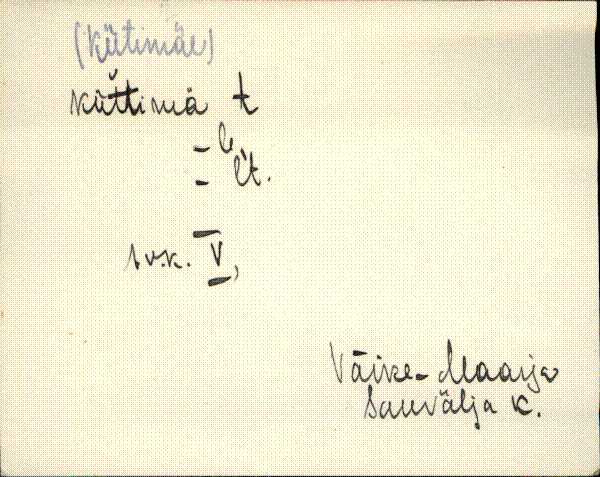 (Kütimäe)
küttimä t
- le
- l't.
t.v.k. V,
Väike-Maarja
Sauvälja k.